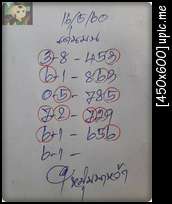 16/5/60
เด่นบน
3-8 - 453
6-1 - 868
0-5 - 785
7-2 - 729
6-1 - 656
6-1 -
[450x600] upic.me